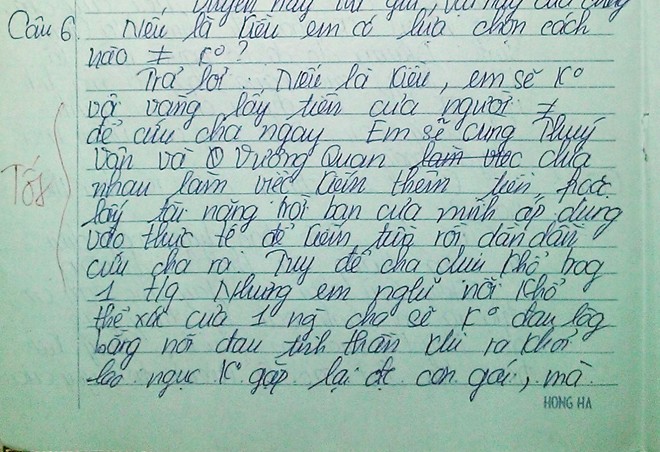 , Duyên này thì giữ, vật này của chung
Câu 6. Nếu là Kiều em có lựa chọn cách
nào ≠ K° ?
Trả lời : Nếu là Kiều, em sẽ K°
vội vàng lấy tiền của người ≠
để cứu cha ngay. Em sẽ cùng Thuý
Vân và Vương Quan làm việc chia
nhau làm việc kiếm thêm tiền, hoặc
lấy tài năng trời ban của mình áp dụng
vào thực tế để kiếm tiền rồi dần dần
cứu cha ra. Tuy để cha chịu khổ trog
1 t/g. Nhưng em nghĩ nỗi khổ
thể xác của 1 ng cha sẽ K° đau lòg
bằng nỗi đau tinh thần khi ra khỏi
lao ngục K° gặp lại đc con gái, mà
Tốt
HONG HA